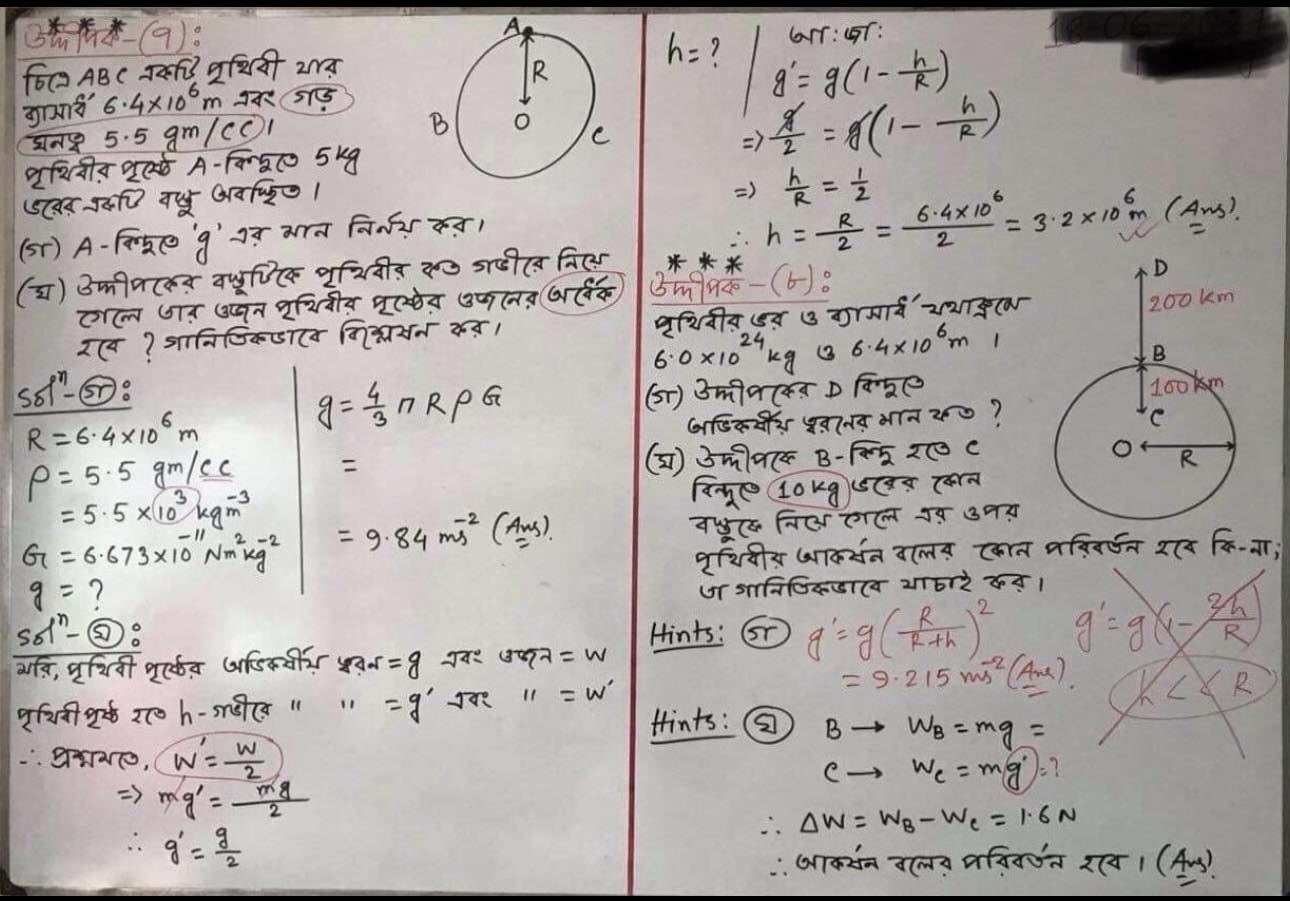 * * *
উদ্দীপক-(৭):
চিত্রে ABC একটি পৃথিবী যার
ব্যাসার্ধ 6.4×10⁶ m এবং গড়
ঘনত্ব 5.5 gm/cc।
পৃথিবীর পৃষ্ঠে A-বিন্দুতে 5kg
ভরের একটি বস্তু অবস্থিত।
A
R
B
O
C
(গ) A-বিন্দুতে 'g' এর মান নির্ণয় কর।
(ঘ) উদ্দীপকের বস্তুটিকে পৃথিবীর কত গভীরে নিয়ে
গেলে তার ওজন পৃথিবীর পৃষ্ঠের ওজনের অর্ধেক
হবে? গানিতিকভাবে বিশ্লেষন কর।
Solⁿ-(গ):
R = 6.4×10⁶ m
ρ = 5.5 gm/cc
= 5.5×10³ kgm⁻³
G = 6.673×10⁻¹¹ Nm²kg⁻²
g = ?
g = 4/3 π R ρ G
=
= 9.84 ms⁻² (Ans).
Solⁿ-(ঘ):
ধরি, পৃথিবী পৃষ্ঠের অভিকর্ষীয় ত্বরন = g এবং ওজন = W
পৃথিবীপৃষ্ঠ হতে h-গভীরে " " = g' এবং " = W'
∴ প্রশ্নমতে, W' = W/2
=> mg' = mg/2
∴ g' = g/2
h = ?
আ: জা:
g' = g(1 - h/R)
=> g/2 = g(1 - h/R)
=> h/R = 1/2
∴ h = R/2 = 6.4×10⁶/2 = 3.2×10⁶ m (Ans).
* * *
উদ্দীপক-(৮):
পৃথিবীর ভর ও ব্যাসার্ধ যথাক্রমে
6.0×10²⁴ kg ও 6.4×10⁶ m ।
(গ) উদ্দীপকের D বিন্দুতে
অভিকর্ষীয় ত্বরনের মান কত?
(ঘ) উদ্দীপকে B-বিন্দু হতে C
বিন্দুতে 10kg ভরের কোন
বস্তুকে নিয়ে গেলে এর ওপর
পৃথিবীর আকর্ষন বলের কোন পরিবর্তন হবে কি-না;
তা গানিতিকভাবে যাচাই কর।
D
200 km
B
100km
C
O
R
Hints: (গ) g' = g(R/R+h)²
= 9.215 ms⁻² (Ans).
g' = g(1 - 2h/R)
h << R
Hints: (ঘ) B → W_B = mg =
C → W_C = mg' = ?
∴ ΔW = W_B - W_C = 1.6 N
∴ আকর্ষন বলের পরিবর্তন হবে। (Ans).